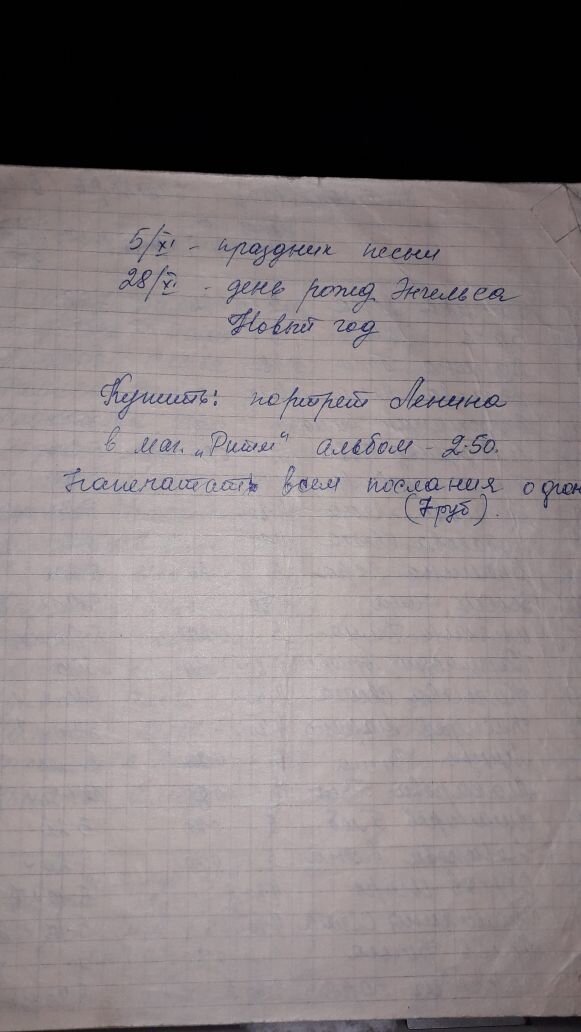 5/XI - праздник песни
28/XI - день рожд. Энгельса
Новый год
Купить: портрет Ленина
в маг. „Ритм" альбом - 2-50.
Напечатать всем послания
(7 руб).